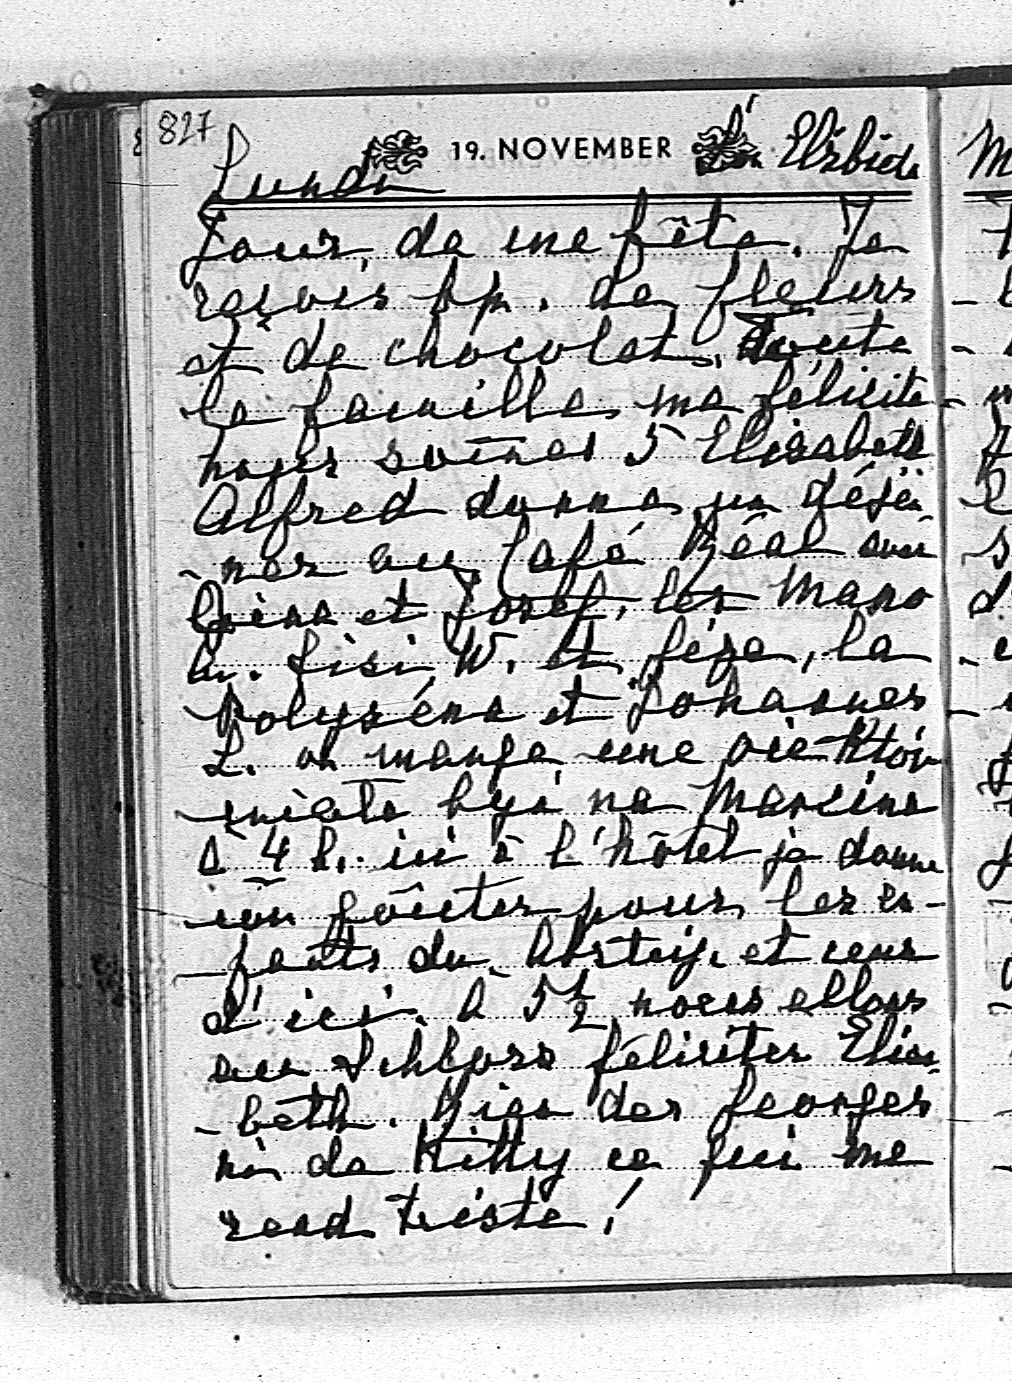 827
19. NOVEMBER
Lundi S. Elisbide
Jour de me fête. Je
reçois bp. de fleurs
et de chocolat, toute
la famille me félicite
nous sommes 5 Elisabeth
Alfred donne un déjeu
-ner au Café Réal avec
et Josef, les Mano
Gisi W. et Géza, la
Polyxéna et Johannes
L. on mange une oie
Marsine
à 4 h. ici à l'hôtel je donne
un goûter pour les en-
-fants du et ceux
d'ici. A 5½ nous allons
au Schloss féliciter Elisa
-beth. Rien des Georges
ni de Kitty ce qui me
rend triste!